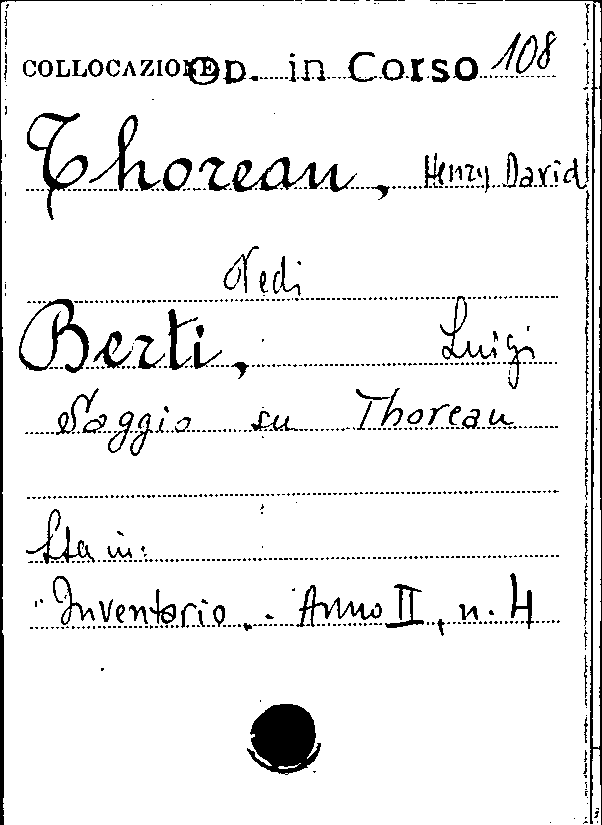 COLLOCAZIONE OD. in Corso 108
Thoreau, Henry David
Vedi
Berti, Luigi
Saggio su Thoreau
Sta in:
"Inventario". Anno II, n. 4